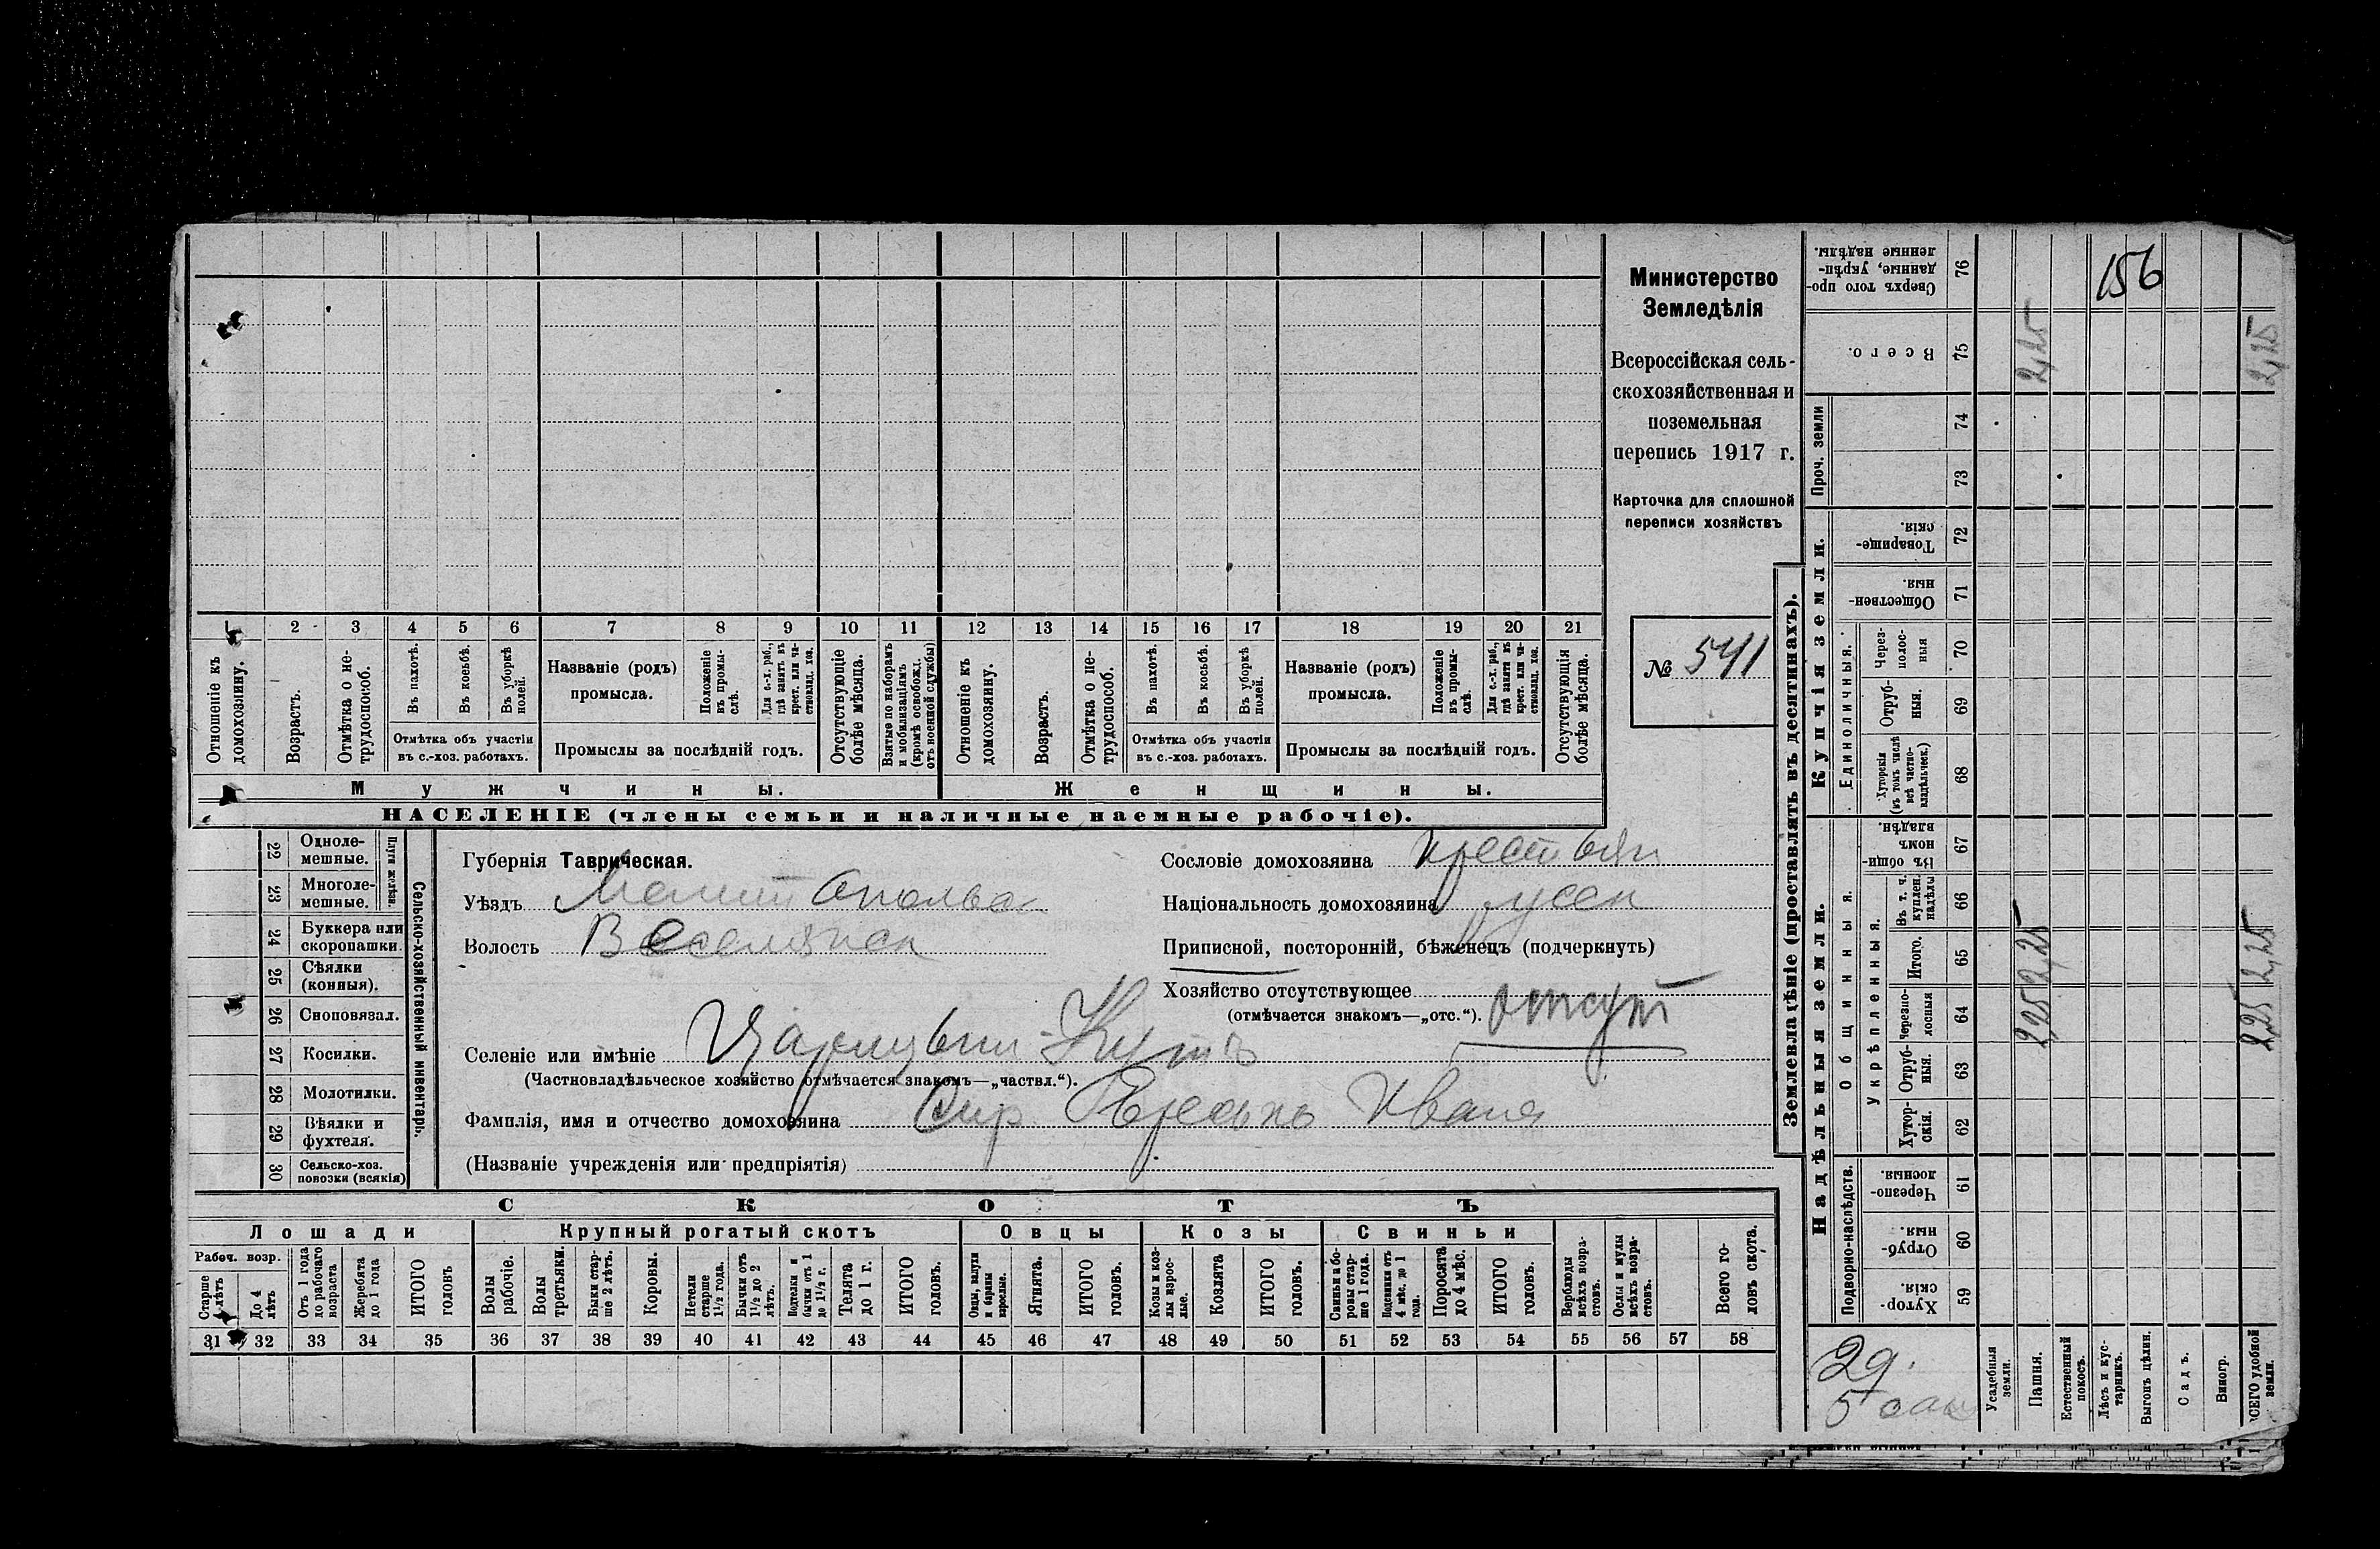 Министерство
Земледѣлія
Всероссійская сель-
скохозяйственная и
поземельная
перепись 1917 г.
Карточка для сплошной
переписи хозяйствъ
№ 541
1 2 3 4 5 6 7 8 9 10 11 12 13 14 15 16 17 18 19 20 21
Отношеніе къ домохозяину.
Возрастъ.
Отмѣтка о не-трудоспособ.
Въ пахотѣ.
Въ косьбѣ.
Въ уборкѣ полей.
Отмѣтка объ участіи
въ с.-хоз. работахъ.
Названіе (родъ)
промысла.
Положеніе въ промы-слѣ.
Для с.-х. раб., гдѣ занятъ въ крест. или ча-стновлад. хоз.
Промыслы за послѣдній годъ.
Отсутствующіе болѣе мѣсяца.
Взятые по наборамъ и мобилизаціямъ (кромѣ освобожд. отъ военной службы)
Отношеніе къ домохозяину.
Возрастъ.
Отмѣтка о не-трудоспособ.
Въ пахотѣ.
Въ косьбѣ.
Въ уборкѣ полей.
Отмѣтка объ участіи
въ с.-хоз. работахъ.
Названіе (родъ)
промысла.
Положеніе въ промы-слѣ.
Для с.-х. раб., гдѣ занята въ крест. или ча-стновлад. хоз.
Промыслы за послѣдній годъ.
Отсутствующія болѣе мѣсяца.
Мужчины.
Женщины.
НАСЕЛЕНІЕ (члены семьи и наличные наемные рабочіе).
22 Одноле-мешные.
23 Многоле-мешные.
Плуги желѣзн.
24 Буккера или скоропашки.
25 Сѣялки (конныя).
26 Сноповязал.
27 Косилки.
28 Молотилки.
29 Вѣялки и фухтеля.
30 Сельско-хоз. повозки (всякія)
Сельско-хозяйственный инвентарь.
Губернія Таврическая.
Уѣздъ Мелитопольск
Волость Веселянск
Сословіе домохозяина крестьян
Національность домохозяина русск
Приписной, посторонній, бѣженецъ (подчеркнуть)
Хозяйство отсутствующее отсут
(отмѣчается знакомъ—„отс.“).
Селеніе или имѣніе Царицын-Кутъ
(Частновладѣльческое хозяйство отмѣчается знакомъ—„частвл.“).
Фамилія, имя и отчество домохозяина Ивана
(Названіе учрежденія или предпріятія)
СКОТЪ
Лошади
Крупный рогатый скотъ
Овцы
Козы
Свиньи
Рабоч. возр.
Старше 4 лѣтъ
До 4 лѣтъ
Отъ 1 года до рабочаго возраста
Жеребята до 1 года
ИТОГО головъ
Волы рабочіе.
Волы третьяки.
Быки стар-ше 2 лѣтъ.
Коровы.
Нетели старше 1½ года.
Бычки отъ 1½ до 2 лѣтъ.
Подтелки и бычки отъ 1 до 1½ г.
Телята до 1 г.
ИТОГО головъ.
Овцы, валухи и бараны взрослые.
Ягнята.
ИТОГО головъ.
Козы и коз-лы взрос-лые.
Козлята
ИТОГО головъ.
Свиньи и бо-ровы стар-ше 1 года.
Подсвинки отъ 4 мѣс. до 1 года.
Поросята до 4 мѣс.
ИТОГО головъ.
Верблюды всѣхъ возра-стовъ.
Ослы и мулы всѣхъ возра-стовъ.
Всего го-ловъ скота.
31 32 33 34 35 36 37 38 39 40 41 42 43 44 45 46 47 48 49 50 51 52 53 54 55 56 57 58
Землевладѣніе (проставлять въ десятинахъ).
Надѣльныя земли.
Купчія земли.
Проч. земли
Подворно-наслѣдств.
Общинныя.
Укрѣпленныя.
Единоличныя.
Хутор-скія. 59
Отруб-ныя. 60
Черезпо-лосныя. 61
Хутор-скія. 62
Отруб-ныя. 63
Черезпо-лосныя 64
Итого. 65
Въ т. ч. куплен. надѣлы 66
Въ общи-номъ владѣн. 67
Хуторскія (въ томъ числѣ всѣ частно-владѣльческ.) 68
Отруб-ныя. 69
Через-полос-ныя 70
Обществен-ныя. 71
Товарище-скія. 72
73
74
Всего. 75
Сверхъ того про-данные, укрѣп-ленные надѣлы. 76
Усадебныя земли.
Пашня. 2,25 2,25 2,25
Естественный покосъ.
Лѣсъ и кус-тарникъ.
Выгонъ цѣлин.
Садъ.
Виногр.
ВСЕГО удобной земли. 2,25 2,25 2,25
156
2д.
5 саж